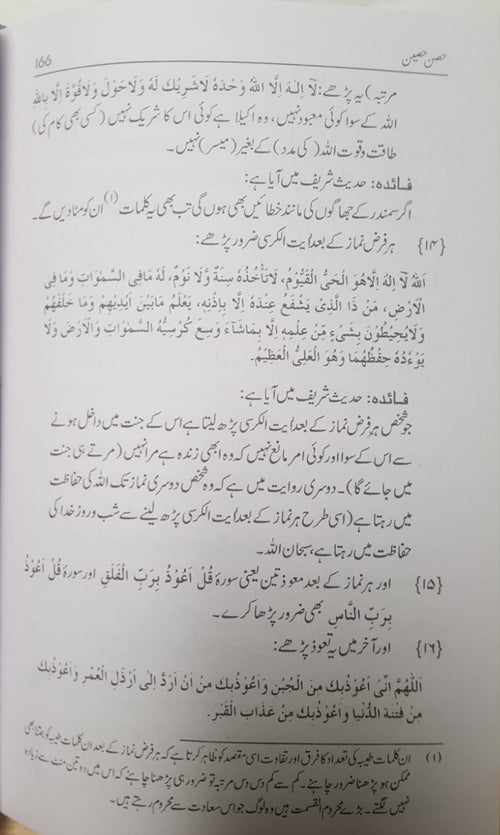 166
حصن حصین
مرتبہ) یہ پڑھے: لَآ اِلٰہَ اِلَّا اللّٰہُ وَحْدَہٗ لَا شَرِیْکَ لَہٗ وَلَا حَوْلَ وَلَا قُوَّۃَ اِلَّا بِاللّٰہِ
اللہ کے سوا کوئی معبود نہیں، وہ اکیلا ہے کوئی اس کا شریک نہیں (کسی بھی کام کی)
طاقت وقوت اللہ (کی مدد) کے بغیر (میسر) نہیں۔
فائدہ: حدیث شریف میں آیا ہے:
اگر سمندر کے جھاگوں کی مانند خطائیں بھی ہوں گی تب بھی یہ کلمات (۱) ان کو مٹا دیں گے۔
{۱۴} ہر فرض نماز کے بعد ایت الکرسی ضرور پڑھے:
اَللّٰہُ لَآ اِلٰہَ اِلَّا ھُوَ الْحَیُّ الْقَیُّوْمُ، لَا تَأْخُذُہٗ سِنَۃٌ وَّلَا نَوْمٌ، لَہٗ مَافِی السَّمٰوَاتِ وَمَا فِی
الْاَرْضِ، مَنْ ذَا الَّذِیْ یَشْفَعُ عِنْدَہٗ اِلَّا بِاِذْنِہٖ، یَعْلَمُ مَابَیْنَ اَیْدِیْھِمْ وَمَا خَلْفَھُمْ
وَلَا یُحِیْطُوْنَ بِشَیْءٍ مِّنْ عِلْمِہٖ اِلَّا بِمَاشَآءَ وَسِعَ کُرْسِیُّہُ السَّمٰوَاتِ وَالْاَرْضَ وَلَا
یَوْءُدُہٗ حِفْظُھُمَا وَھُوَ الْعَلِیُّ الْعَظِیْمُ۔
فائدہ: حدیث شریف میں آیا ہے:
جو شخص ہر فرض نماز کے بعد ایت الکرسی پڑھ لیتا ہے اس کے جنت میں داخل ہونے
سے اس کے سوا اور کوئی امر مانع نہیں کہ وہ ابھی زندہ ہے مرا نہیں (مرتے ہی جنت
میں جائے گا)۔ دوسری روایت میں ہے کہ وہ شخص دوسری نماز تک اللہ کی حفاظت
میں رہتا ہے (اسی طرح ہر نماز کے بعد ایت الکرسی پڑھ لینے سے شب وروز خدا کی
حفاظت میں رہتا ہے، سبحان اللہ۔
{۱۵} اور ہر نماز کے بعد معوذتین یعنی سورہ قُلْ اَعُوْذُ بِرَبِّ الْفَلَقِ اور سورہ قُلْ اَعُوْذُ
بِرَبِّ النَّاسِ بھی ضرور پڑھا کرے۔
{۱۶} اور آخر میں یہ تعوذ پڑھے:
اَللّٰھُمَّ اِنِّیْ اَعُوْذُبِکَ مِنَ الْجُبْنِ وَاَعُوْذُبِکَ مِنْ اَنْ اُرَدَّ اِلٰی اَرْذَلِ الْعُمُرِ وَاَعُوْذُبِکَ
مِنْ فِتْنَۃِ الدُّنْیَا وَاَعُوْذُبِکَ مِنْ عَذَابِ الْقَبْرِ۔
(۱) ان کلمات طیبہ کی تعداد کا فرق اور تفاوت اسی مقصد کو ظاہر کرتا ہے کہ ہر فرض نماز کے بعد ان کلمات طیبہ کو جتنا بھی
ممکن ہو پڑھنا ضرور چاہئے۔ کم سے کم دس دس مرتبہ تو ضرور ہی پڑھنا چاہئے کہ اس میں دو تین منٹ سے زیادہ
نہیں لگتے۔ بڑے محروم القسمت ہیں وہ لوگ جو اس سعادت سے محروم رہتے ہیں۔